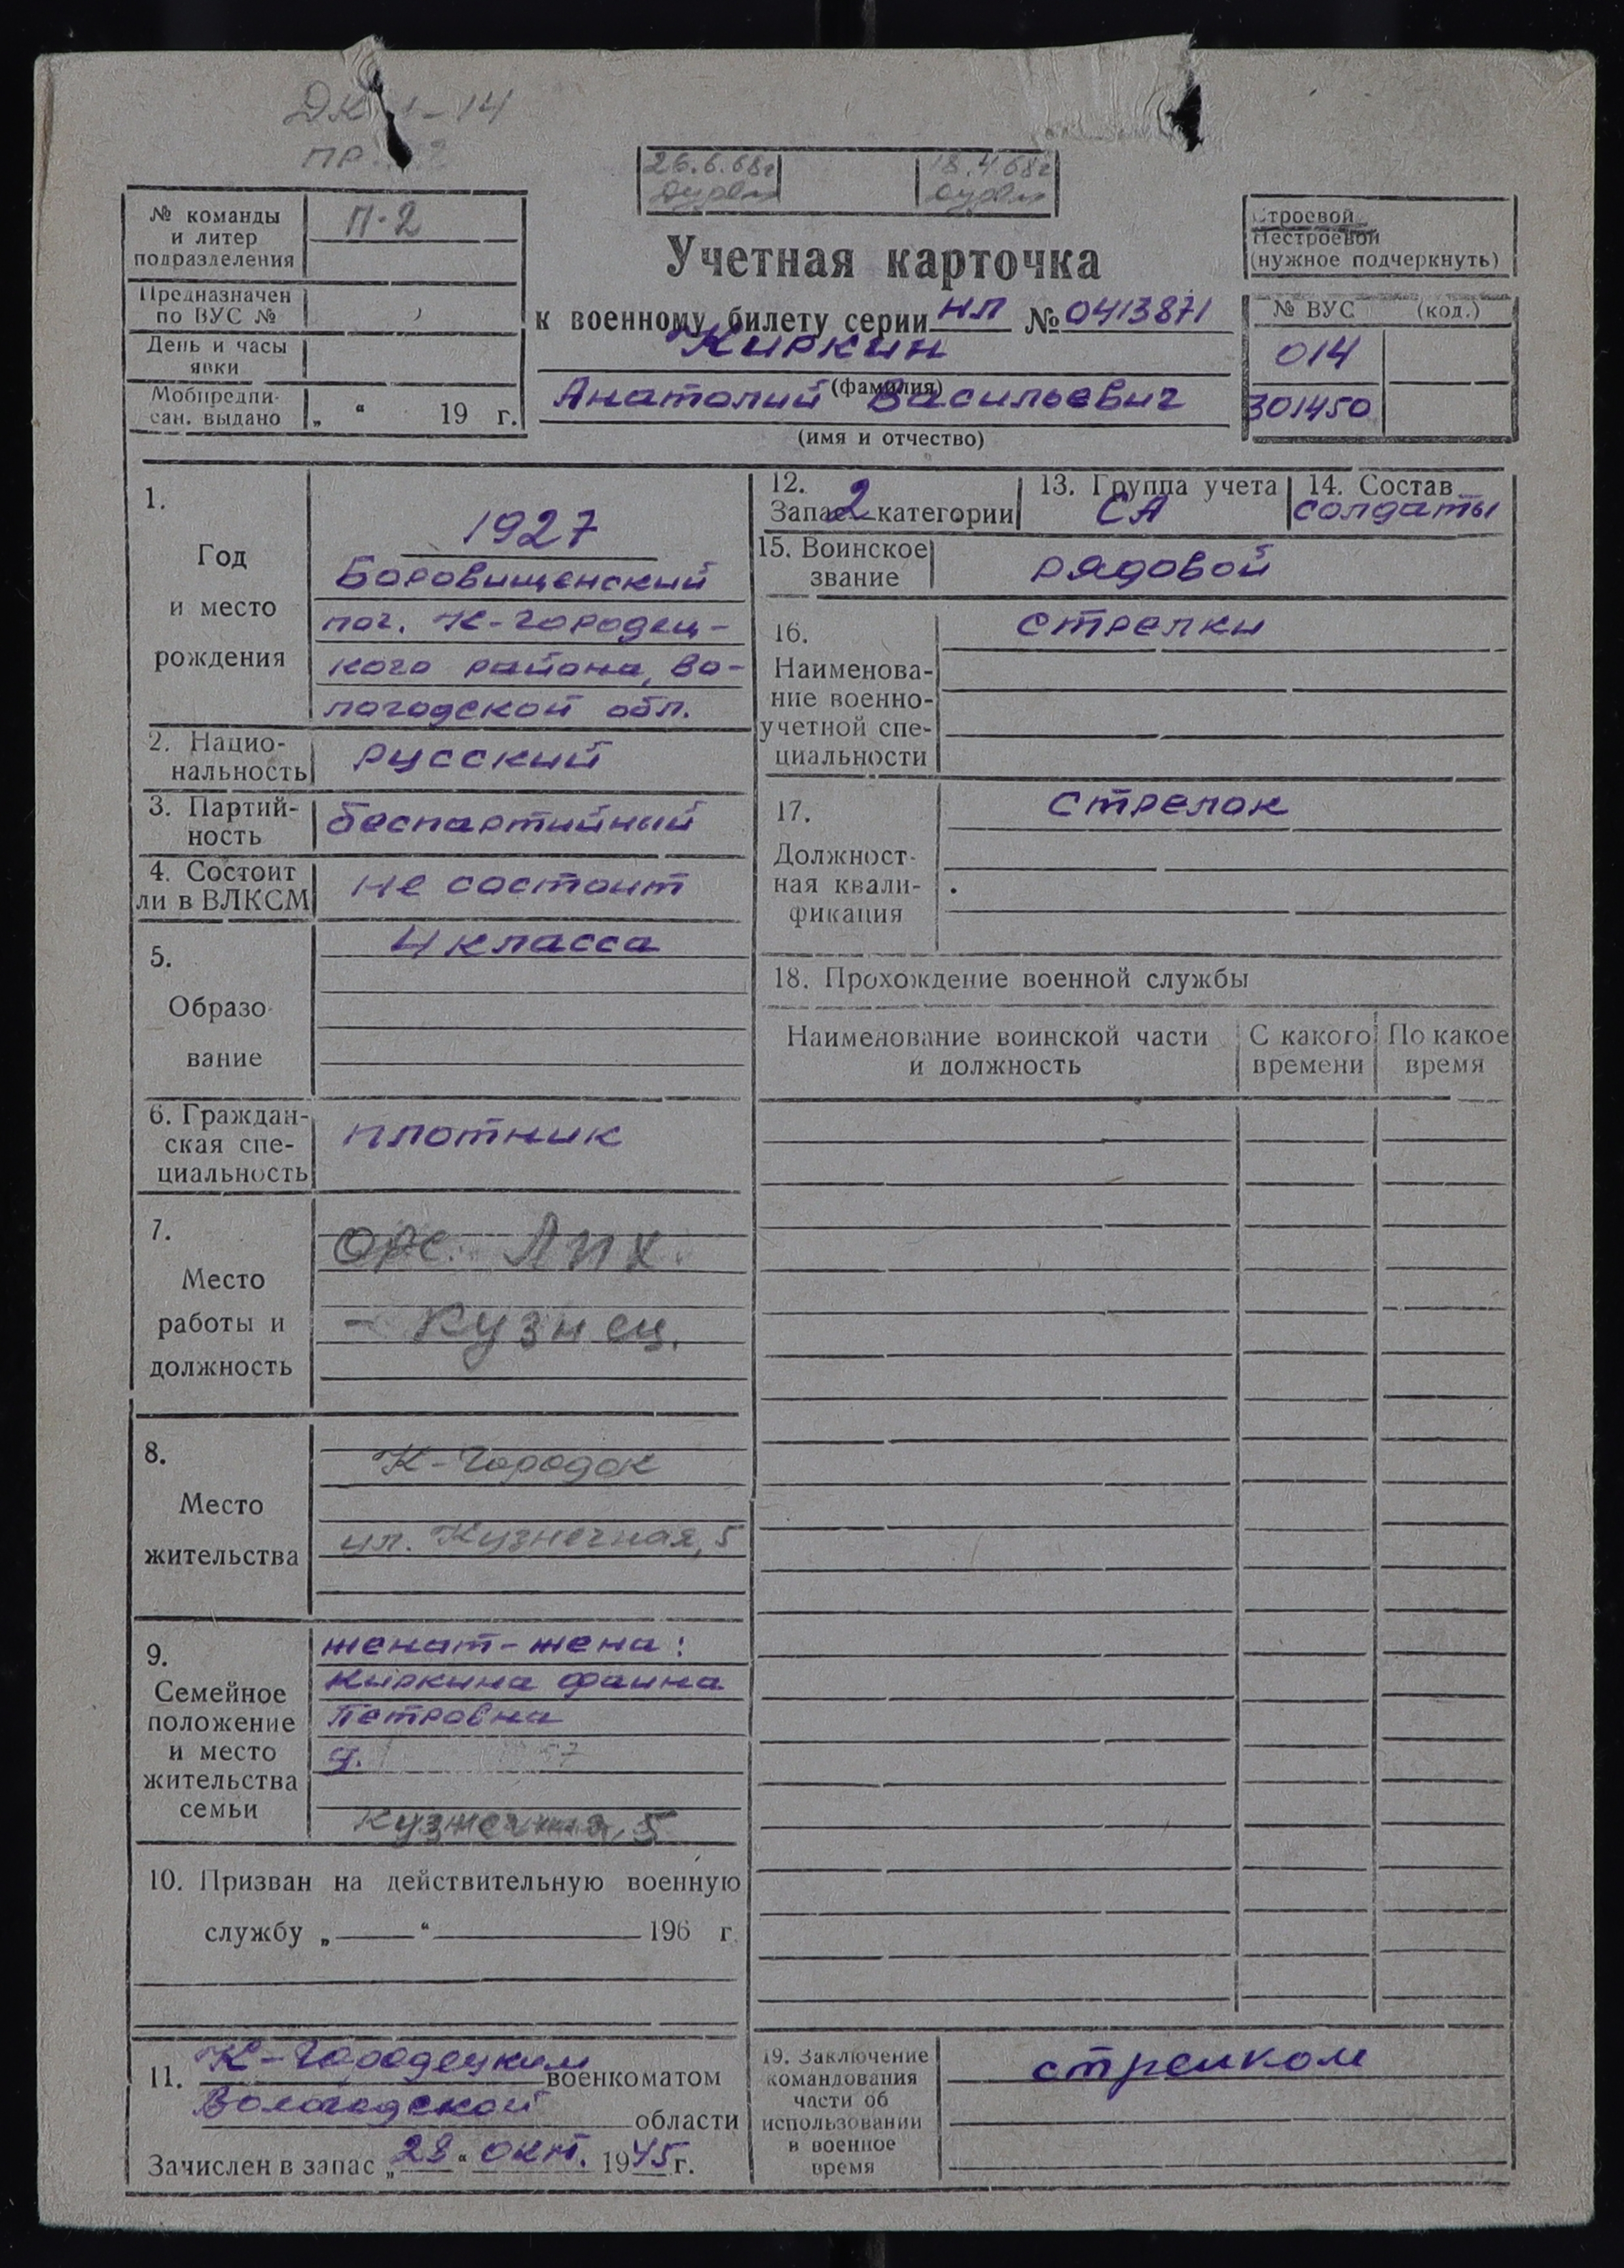 ДК 1-14
пр.
26.6.68г
18.4.68г
№ команды
и литер
подразделения
П-2
Предназначен
по ВУС №
День и часы
явки
Мобпредпи-
сан. выдано
„ “ 19 г.
Учетная карточка
к военному билету серии НЛ № 0413871
Киркин
(фамилия)
Анатолий Васильевич
(имя и отчество)
Строевой
Нестроевой
(нужное подчеркнуть)
№ ВУС (код.)
014
301450
1.
Год
и место
рождения
1927
Боровищенский
пог. К-Городец-
кого района, Во-
логодской обл.
2. Нацио-
нальность
русский
3. Партий-
ность
беспартийный
4. Состоит
ли в ВЛКСМ
не состоит
5.
Образо-
вание
4 класса
6. Граждан-
ская спе-
циальность
плотник
7.
Место
работы и
должность
Орс. ЛПХ.
- Кузнец.
8.
Место
жительства
К-Городок
ул. Кузнечная, 5
9.
Семейное
положение
и место
жительства
семьи
женат-жена:
Киркина Фаина
Петровна
Кузнечная, 5
10. Призван на действительную военную
службу „ “ 196 г.
11. К-Городецким военкоматом
Вологодской области
Зачислен в запас „28“ окт. 1945 г.
12.
Запас 2 категории
13. Группа учета
СА
14. Состав
солдаты
15. Воинское
звание
рядовой
16.
Наименова-
ние военно-
учетной спе-
циальности
стрелки
17.
Должност-
ная квали-
фикация
стрелок
18. Прохождение военной службы
Наименование воинской части
и должность
С какого
времени
По какое
время
19. Заключение
командования
части об
использовании
в военное
время
стрелком